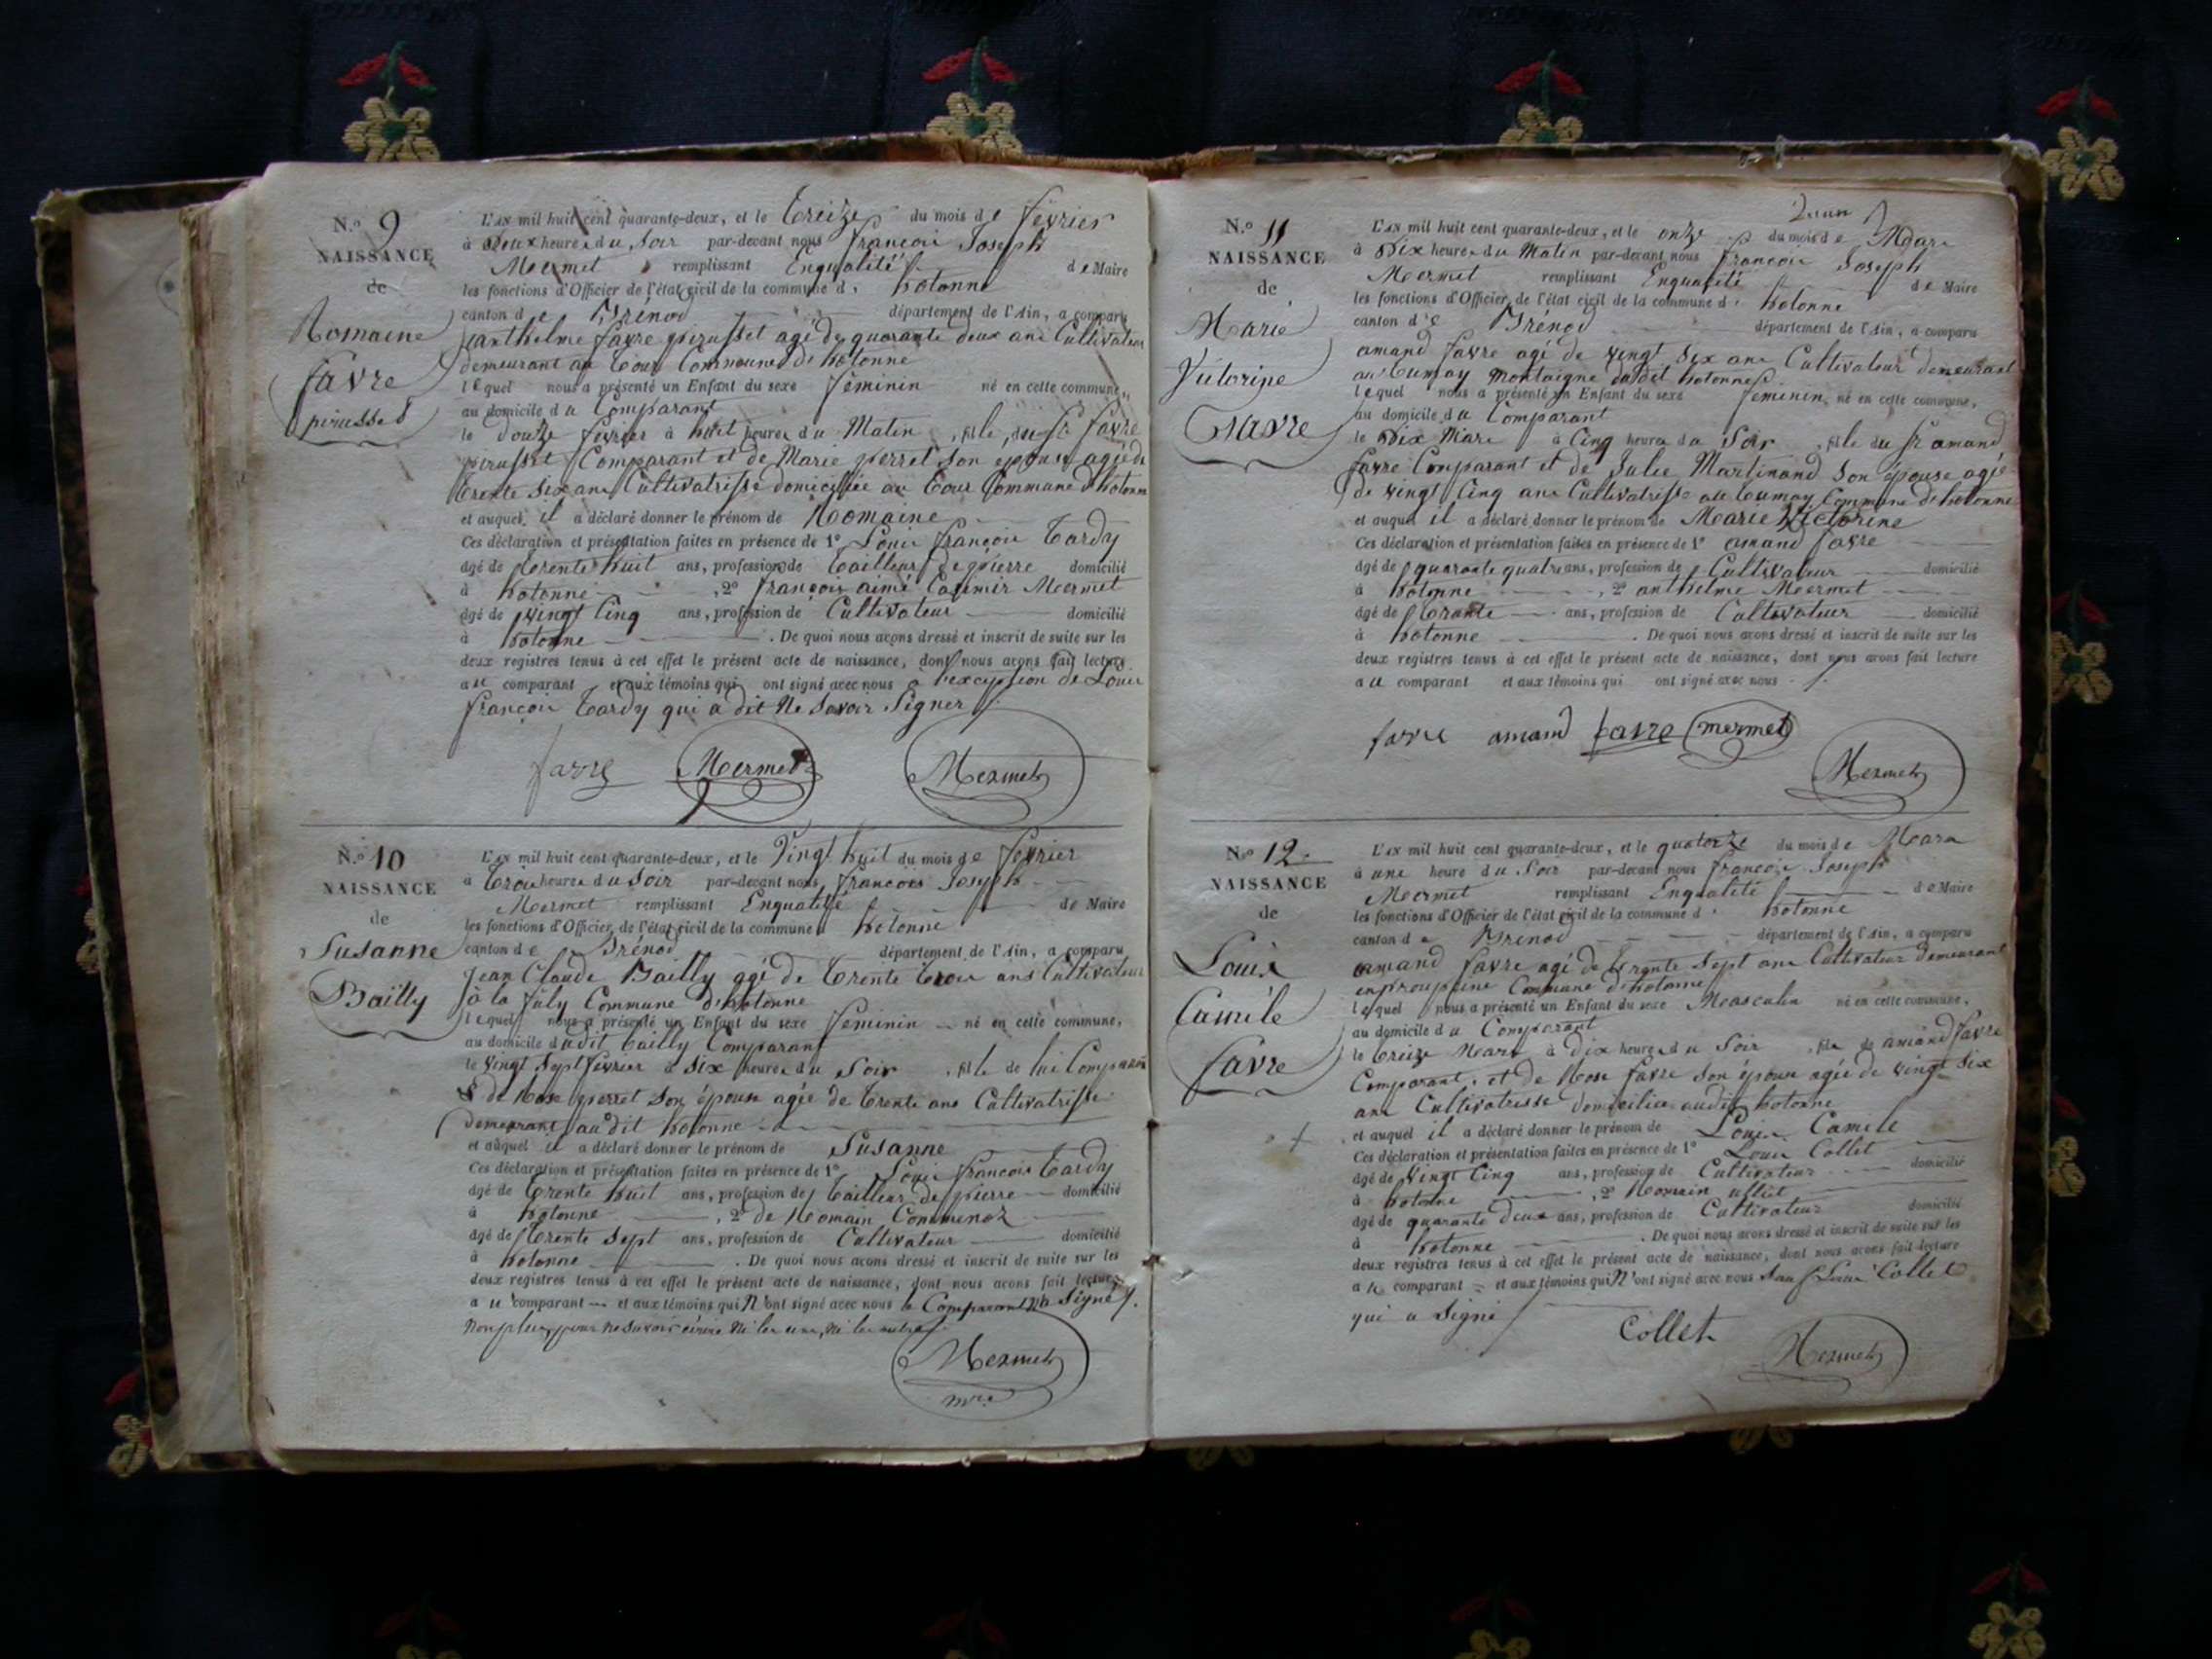 N.o 9
NAISSANCE
de
Romaine
favre
pérusset
L'AN mil huit cent quarante-deux, et le Treize du mois de février
à Deux heures du Soir par-devant nous françois Joseph
Mermet remplissant Enqualité de Maire
les fonctions d'Officier de l'état civil de la commune d' hotonne
canton de Brénod département de l'Ain, a comparu
anthelme favre perusset agé de quarante deux ans Cultivateur
demeurant au Cour Commune de hotonne
lequel nous a présenté un Enfant du sexe féminin né en cette commune,
au domicile du Comparant
le douze février à huit heures du Matin, fille du Sr favre
perusset Comparant et de Marie perret Son épouse agée de
trente Six ans Cultivatrisse domiciliée au Cour Commune d'hotonne
et auquel il a déclaré donner le prénom de Romaine
Ces déclaration et présentation faites en présence de 1° Louis françois Tardy
âgé de trente huit ans, profession de Tailleur de pierre domicilié
à hotonne, 2° françois aimé Casimir Mermet
âgé de vingt Cinq ans, profession de Cultivateur domicilié
à hotonne. De quoi nous avons dressé et inscrit de suite sur les
deux registres tenus à cet effet le présent acte de naissance, dont nous avons fait lecture
au comparant et aux témoins qui ont signé avec nous a l'exception de Louis
françois Tardy qui a dit Ne Savoir Signer
favre Mermet Mermet
N.o 10
NAISSANCE
de
Susanne
Bailly
L'AN mil huit cent quarante-deux, et le Vingt huit du mois de février
à Trois heures du Soir par-devant nous françois Joseph
Mermet remplissant Enqualité de Maire
les fonctions d'Officier de l'état civil de la commune d' hotonne
canton de Brénod département de l'Ain, a comparu
Jean Claude Bailly agé de Trente Trois ans Cultivateur
à la July Commune d'hotonne
lequel nous a présenté un Enfant du sexe féminin né en cette commune,
au domicile dudit bailly Comparant
le vingt Sept février à Six heures du Soir, fille de lui Comparant
& de Rose perret Son épouse agée de Trente ans Cultivatrisse
demeurant audit hotonne
et auquel il a déclaré donner le prénom de Susanne
Ces déclaration et présentation faites en présence de 1° Louis françois Tardy
âgé de Trente huit ans, profession de Tailleur de pierre domicilié
à hotonne, 2° de Romain
âgé de Trente Sept ans, profession de Cultivateur domicilié
à hotonne. De quoi nous avons dressé et inscrit de suite sur les
deux registres tenus à cet effet le présent acte de naissance, dont nous avons fait lecture
au comparant et aux témoins qui N'ont signé avec nous le Comparant n'a Signé
Non plus pour ne Savoir écrire Ni les uns, Ni les autres
Mermet
mre
N.o 11
NAISSANCE
de
Marie
Victorine
favre
L'AN mil huit cent quarante-deux, et le onze du mois de Mars
à Dix heures du Matin par-devant nous françois Joseph
Mermet remplissant Enqualité de Maire
les fonctions d'Officier de l'état civil de la commune d' hotonne
canton de Brénod département de l'Ain, a comparu
amand favre agé de vingt Six ans Cultivateur demeurant
au Montaigne dudit hotonne
lequel nous a présenté un Enfant du sexe féminin né en cette commune,
au domicile du Comparant
le Dix Mars à Cinq heures du Soir, fille du Sr amand
favre Comparant et de Julie Martinand Son épouse agée
de vingt Cinq ans Cultivatrisse au Commune d'hotonne
et auquel il a déclaré donner le prénom de Marie Victorine
Ces déclaration et présentation faites en présence de 1° amand favre
âgé de quarante quatre ans, profession de Cultivateur domicilié
à hotonne, 2° anthelme Mermet
âgé de Trante ans, profession de Cultivateur domicilié
à hotonne. De quoi nous avons dressé et inscrit de suite sur les
deux registres tenus à cet effet le présent acte de naissance, dont nous avons fait lecture
au comparant et aux témoins qui ont signé avec nous
favre amand favre mermet
Mermet
N.o 12
NAISSANCE
de
Louis
Camile
favre
L'AN mil huit cent quarante-deux, et le quatorze du mois de Mars
à une heure du Soir par-devant nous françois Joseph
Mermet remplissant Enqualité de Maire
les fonctions d'Officier de l'état civil de la commune d' hotonne
canton de Brénod département de l'Ain, a comparu
amand favre agé de Trante Sept ans Cultivateur demeurant
Commune d'hotonne
lequel nous a présenté un Enfant du sexe Masculin né en cette commune,
au domicile du Comparant
le treize Mars à dix heures du Soir, fils de amand favre
Comparant et de Rose favre Son épouse agée de vingt Six
ans Cultivatrisse domiciliée audit hotonne
et auquel il a déclaré donner le prénom de Louis Camile
Ces déclaration et présentation faites en présence de 1° Louis Collet
âgé de Vingt Cinq ans, profession de Cultivateur domicilié
à hotonne, 2° Romain
âgé de quarante deux ans, profession de Cultivateur domicilié
à hotonne. De quoi nous avons dressé et inscrit de suite sur les
deux registres tenus à cet effet le présent acte de naissance, dont nous avons fait lecture
au comparant et aux témoins qui N'ont signé avec nous Sauf Louis Collet
qui a Signé
Collet Mermet